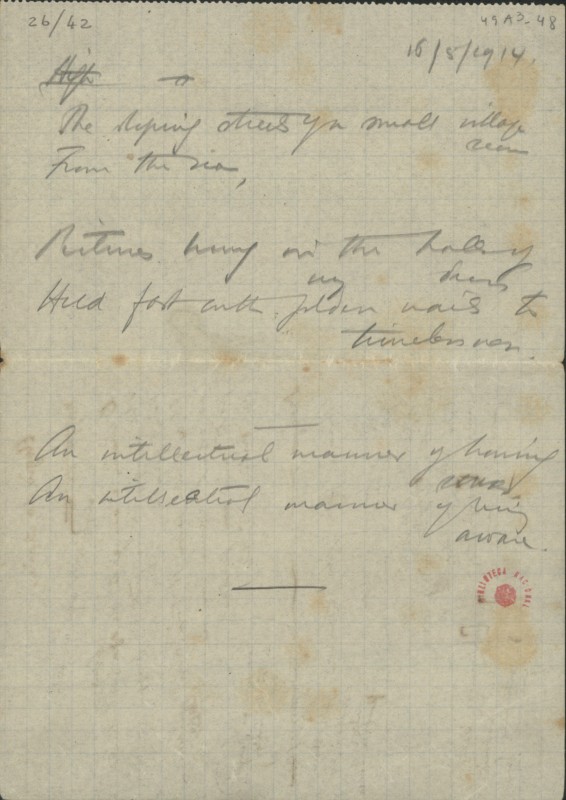 26/42
49A3-48
16/5/1914.
High
The sloping streets of a small village
seen
From the sea,
Pictures hung on the halls of
my dreams
Held fast with golden nails to
timelessness.
An intellectual manner of having
senses
An intellectual manner of being
aware.
BIBLIOTECA NACIONAL